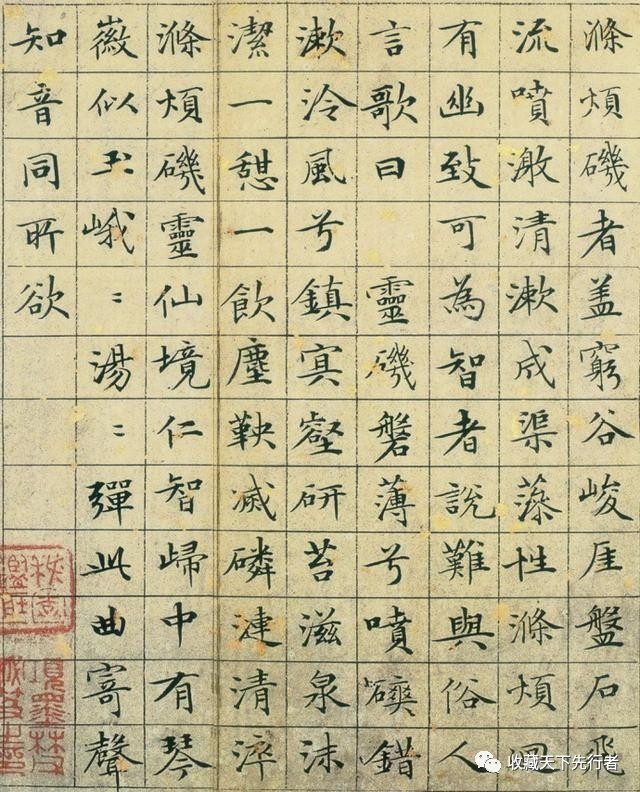 滌煩磯者盖窮谷峻厓盤石飛
流噴激清漱成渠藻性滌煩迴
有幽致可為智者說難與俗人
言歌曰 靈磯磐薄兮噴錯
漱泠風兮鎮寘壑研苔滋泉沫
潔一憇一飲塵鞅滅磷漣清淬
滌煩磯靈仙境仁智歸中有琴
徽似玉峨〻湯〻彈此曲寄聲
知音同所欲
收藏天下先行者